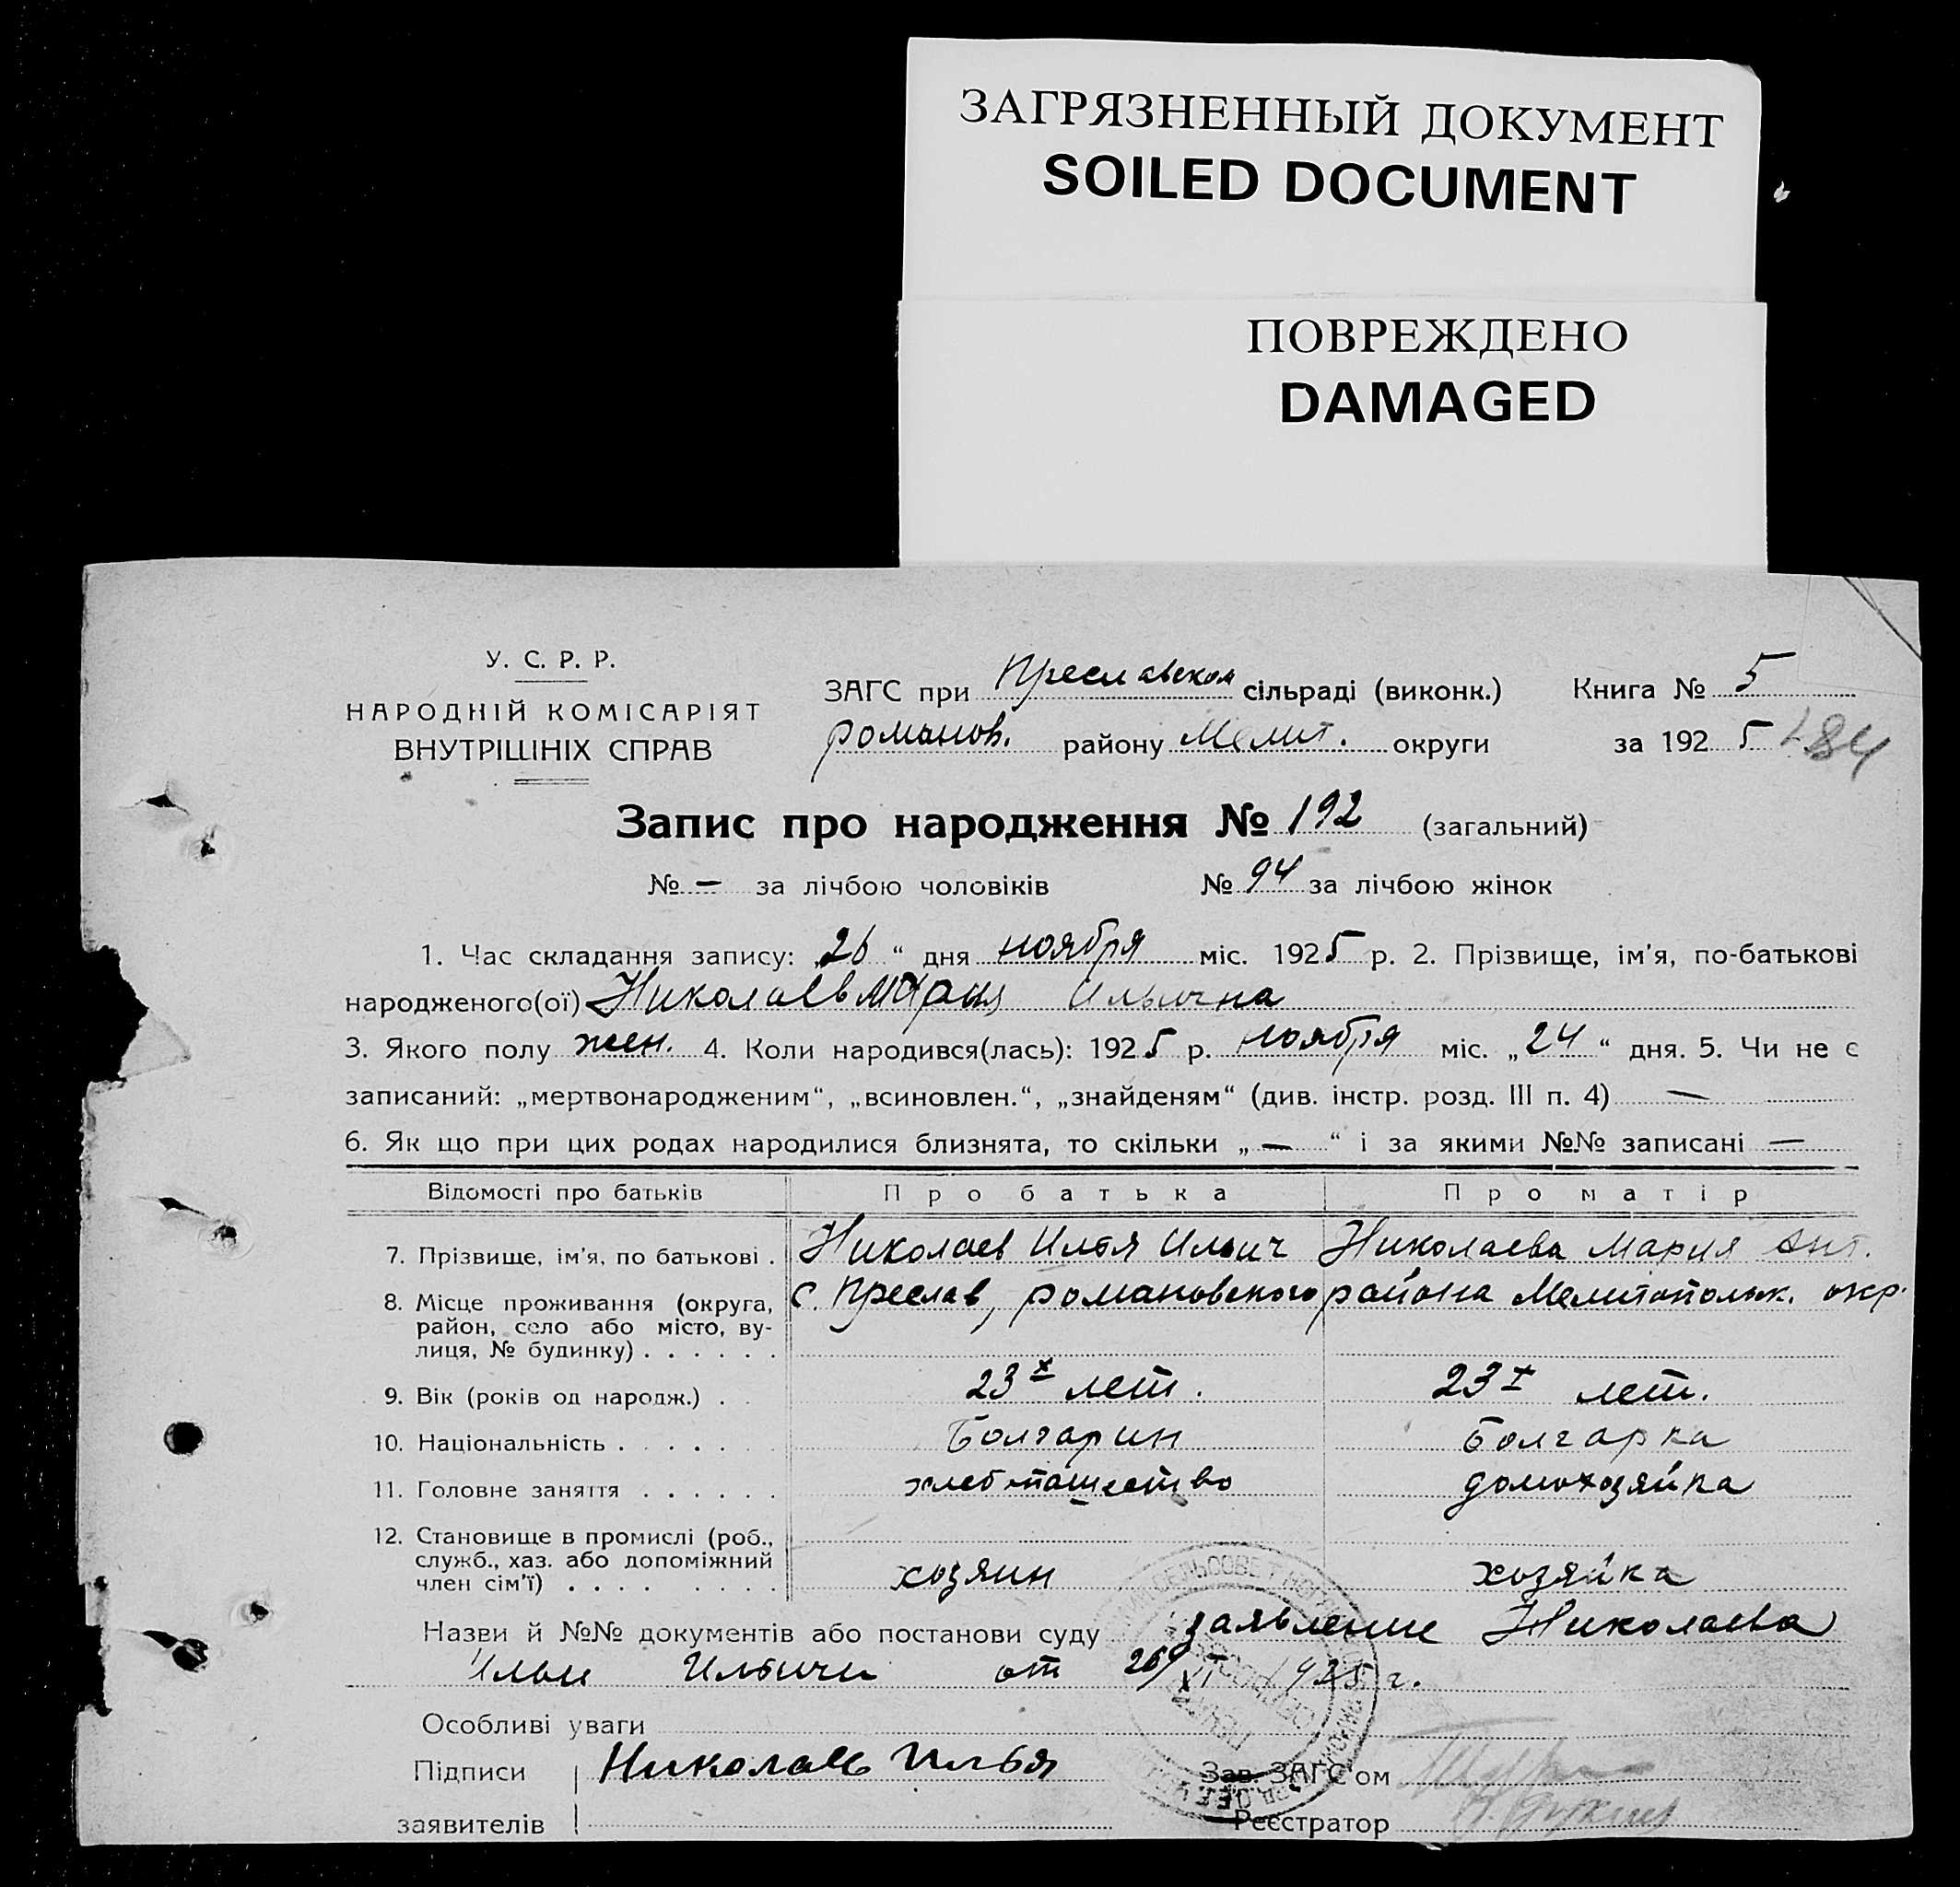 ЗАГРЯЗНЕННЫЙ ДОКУМЕНТ
SOILED DOCUMENT
ПОВРЕЖДЕНО
DAMAGED
У. С. Р. Р.
НАРОДНІЙ КОМІСАРІЯТ
ВНУТРІШНІХ СПРАВ
ЗАГС при Преславском сільраді (виконк.) Книга № 5
романов. району Мелит. округи за 192 5 184
Запис про народження № 192 (загальний)
№ — за лічбою чоловіків № 94 за лічбою жінок
1. Час складання запису: „26“ дня ноября міс. 1925 р. 2. Прізвище, ім'я, по-батькові
народженого(ої) Николаев Мария Ильична
3. Якого полу жен. 4. Коли народився(лась): 1925 р. ноября міс. „24“ дня. 5. Чи не є
записаний: „мертвонародженим“, „всиновлен.“, „знайденям“ (див. інстр. розд. III п. 4) —
6. Як що при цих родах народилися близнята, то скільки „ — “ і за якими №№ записані —
Відомості про батьків Про батька Про матір
7. Прізвище, ім'я, по батькові . Николаев Илья Ильич Николаева Мария Ант.
8. Місце проживання (округа, с. Преслав, романовского района Мелитопольск. окр.
район, село або місто, ву-
лиця, № будинку) . . . . . .
9. Вік (років од народж.) . . 23х лет. 23х лет.
10. Національність . . . . . Болгарин Болгарка
11. Головне заняття . . . . . . хлебопашество домохозяйка
12. Становище в промислі (роб.,
служб., хаз. або допоміжний
член сім'ї) . . . . . . . . хозяин хозяйка
Назви й №№ документів або постанови суду заявление Николаева
Ильи Ильича от 26/XI 1925 г.
Особливі уваги
Підписи Николаев Илья Зав. ЗАГС'ом
заявителів Реєстратор